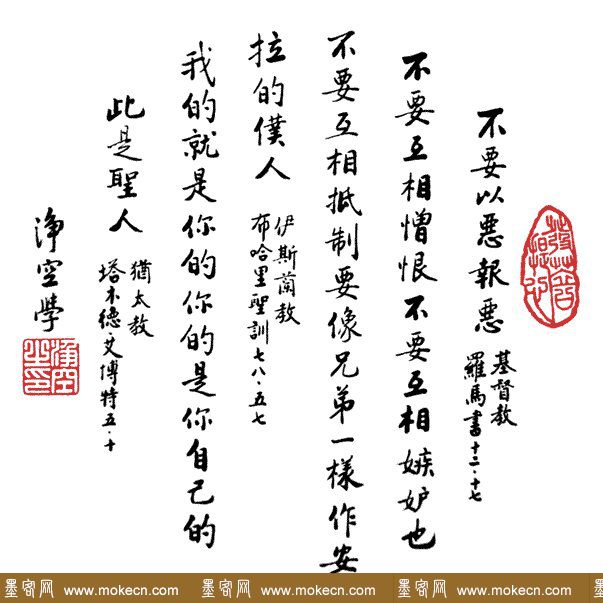 發菩提心
不要以惡報惡
基督教
羅馬書十二·十七
不要互相憎恨不要互相嫉妒也
不要互相抵制要像兄弟一樣作安
拉的僕人
伊斯蘭教
布哈里聖訓七八·五七
我的就是你的你的是你自己的
此是聖人
猶太教
塔木德·艾博特五·十
淨空學
淨空
之印
墨客网 www.mokecn.com 墨客网 www.mokecn.com 墨客网 www.mokecn.com 墨客网